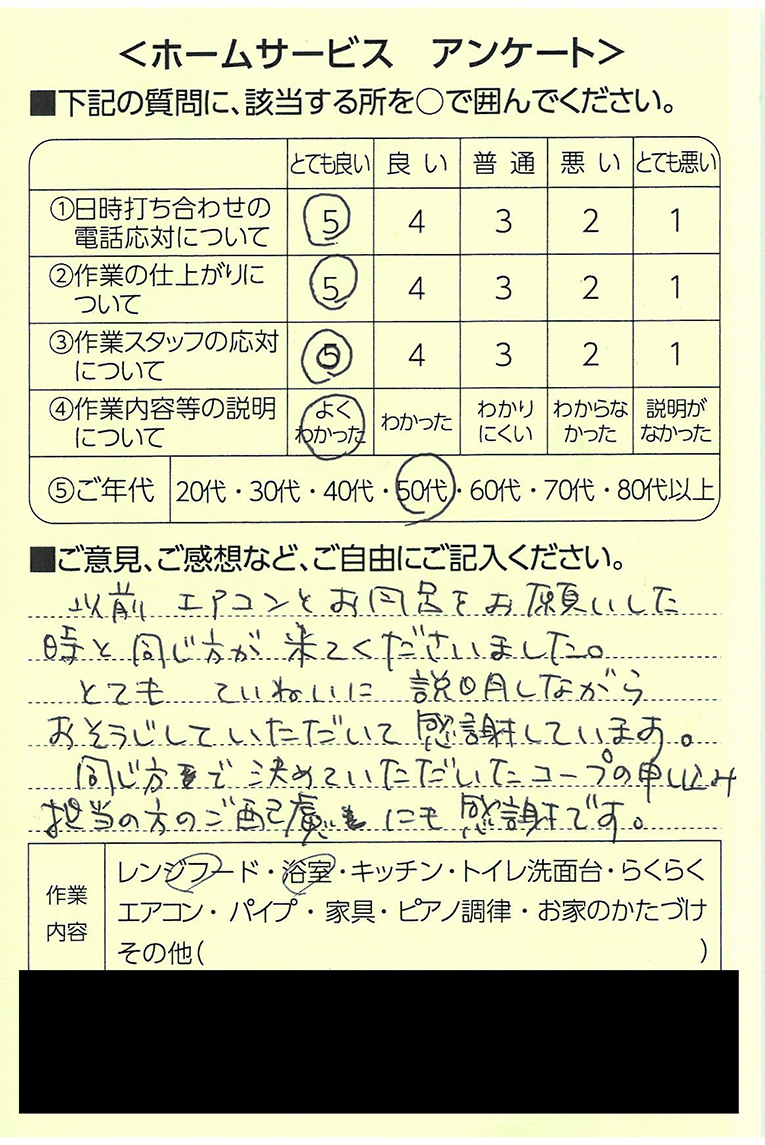 ＜ホームサービス　アンケート＞
■下記の質問に、該当する所を○で囲んでください。
とても良い　良い　普通　悪い　とても悪い
①日時打ち合わせの
電話応対について　5　4　3　2　1
②作業の仕上がりに
ついて　5　4　3　2　1
③作業スタッフの応対
について　5　4　3　2　1
④作業内容等の説明　よく　わかった　わかり　わからな　説明が
について　わかった　にくい　かった　なかった
⑤ご年代　20代・30代・40代・50代・60代・70代・80代以上
■ご意見、ご感想など、ご自由にご記入ください。
以前 エアコンとお風呂をお願いした
時と同じ方が来てくださいました。
とても ていねいに 説明しながら
おそうじしていただいて感謝しています。
同じ方で決めていただいたコープの申し込み
担当の方のご配慮にも感謝です。
作業
内容
レンジフード・浴室・キッチン・トイレ洗面台・らくらく
エアコン・パイプ・家具・ピアノ調律・お家のかたづけ
その他(　)